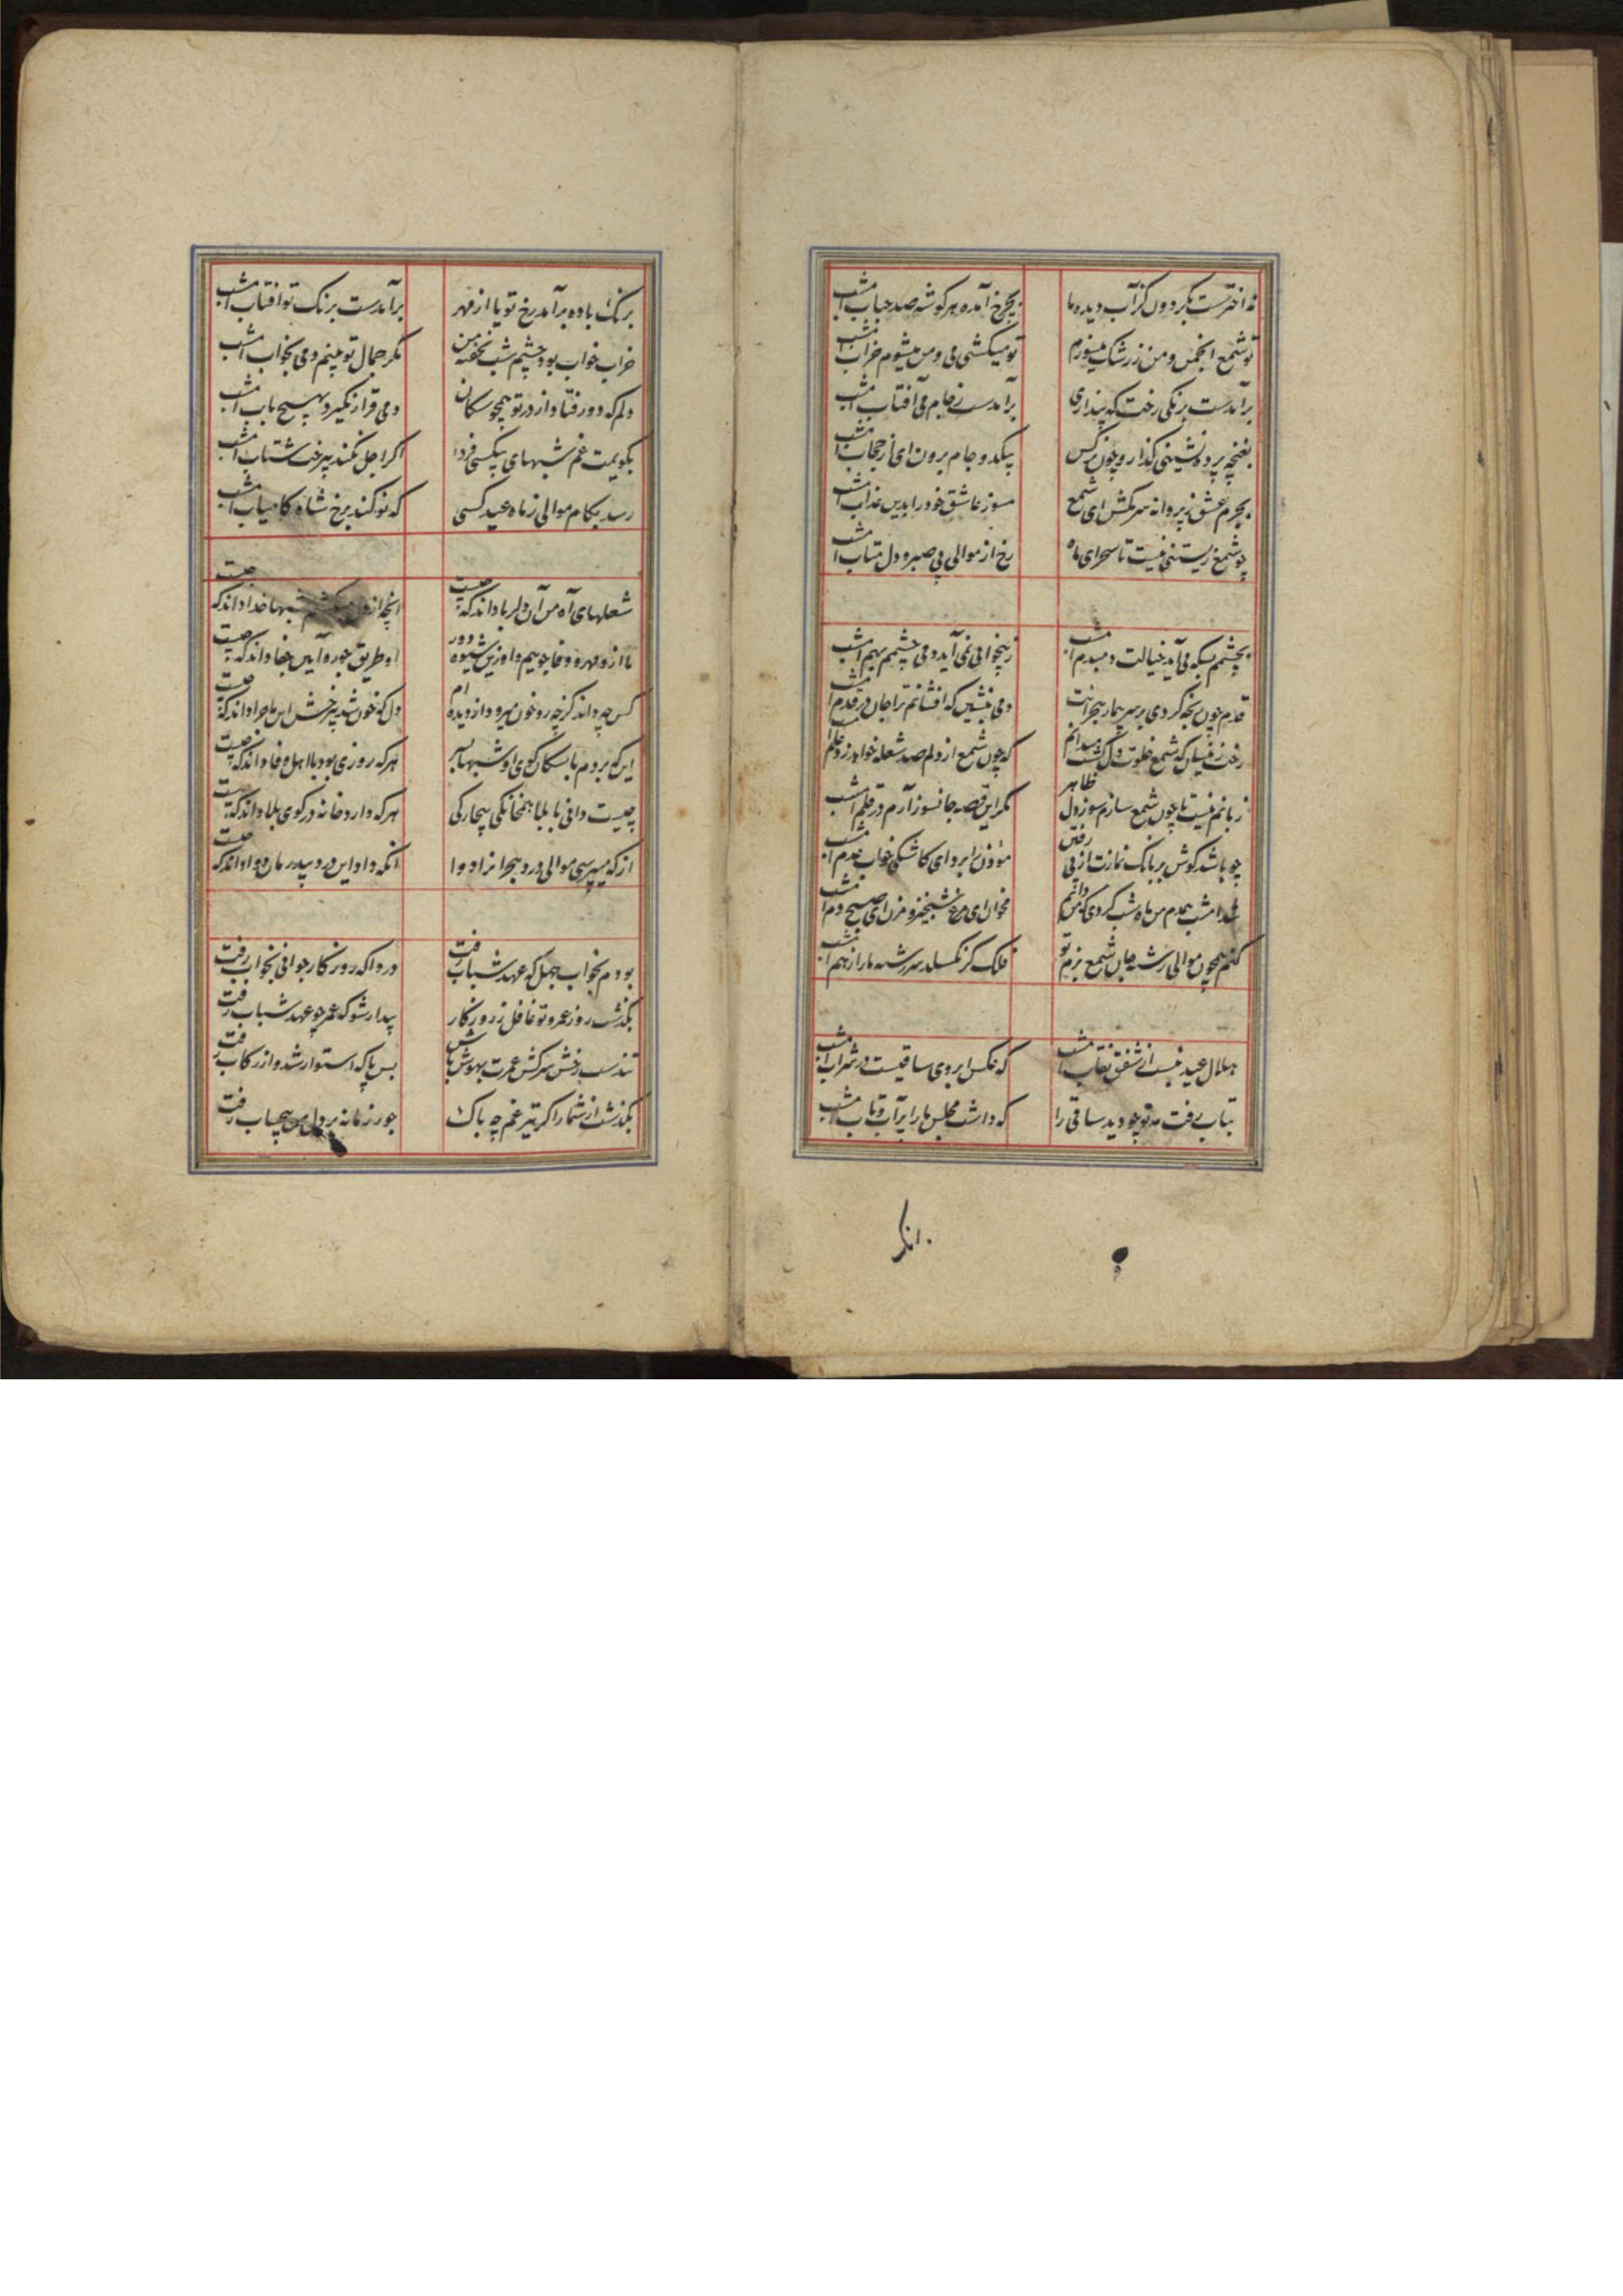 نه اخترست بکردون کز آب دیده ما
بچرخ آمده هر کوشه صد حباب امشب
تو شمع انجمن و من ز رشک میسوزم
تو میکشی می و من میشوم خراب امشب
برآمدست برنکی رخت که پنداری
برآمدست ز جام می آفتاب امشب
بغنچه پرده نشینی کذار و چون نرکس
بیکدو جام برون ای از حجاب امشب
بجرم عشق ز پروانه سر مکش ای شمع
مسوز عاشق خود را بدین عذاب امشب
چو شمع زیستنم نیست تا سحر ای ماه
رخ از موالی بی صبر و دل متاب امشب
بچشمم بسکه می آید خیالت دمبدم امشب
ز بیخوابی نمی آید دمی چشمم بهم امشب
قدم چون رنجه کردی بر سر بیمار هجرانت
دمی بنشین که افشانم ترا جان در قدم امشب
رخت زینسان که شمع خلوت دل کشت میدانم
که چون شمع از دلم صد شعله خواهد زد علم امشب
زبانم نیست تا چون شمع سازم سوز دل ظاهر
مکر این قصه جانسوز آرم در قلم امشب
چو باشد کوش بر بانک نمازت از پی رفتن
موذن را بردای کاشکی خواب عدم امشب
امشب همدم من ماه شب کردی که من دانم
مخوان ای مرغ شبخیز و مزن ای صبح دم امشب
کنم همچون موالی رشته جان شمع بزم تو
فلک کر نکسلد سر رشته ما را ز هم امشب
هلال عید نبست از شفق نقاب امشب
که عکس ابروی ساقیست در شراب امشب
بتاب رفت مه نو چو دید ساقی را
که داشت مجلس ما را بر آب و تاب امشب
برنک باده برآمد رخ تو یا از مهر
برآمدست برنک تو افتاب امشب
خراب خواب بود چشم شب نخفته من
مکر جمال تو بینم دمی بخواب امشب
دلم که دور فتاد از در تو همچو سکان
دمی قرار نکیرد بهیچ باب امشب
بکویمت غم شبهای بیکسی فردا
اکر اجل نکند بر سرت شتاب امشب
رسد بکام موالی ز ماه عید کسی
که نو کند برخ شاه کامیاب امشب
شعلهای آه من آن دلربا داند که چیست
انچه از دل میکشم شبها خدا داند که چیست
ما ازو مهر و وفا جوییم و او زین شیوه دور
او طریق جور و آیین جفا داند که چیست
کس چه داند کز چه رو خون میرود از دیده ام
دل که خون شد بر رخش این ماجرا داند که چیست
این که بردم با سکان کوی او شبها بسر
هر که روزی بود با اهل وفا داند که چیست
چیست دانی با بلا همخانکی بیچارکی
هر که دارد خانه در کوی بلا داند که چیست
از که میپرسی موالی درد هجرانرا دوا
انکه داد این درد بیدرمان دوا داند که چیست
بودم بخواب جهل که عهد شباب رفت
دردا که روزکار جوانی بخواب رفت
بکذشت روز عمر و تو غافل ز روزکار
بیدار شو که عمر چو عهد شباب رفت
تندست رخش سرکش عمرت بهوش باش
بس پا که استوار شد و از رکاب رفت
بکذشت از شمار اکر تیر غم چه باک
جور زمانه بر دل من بیحساب رفت